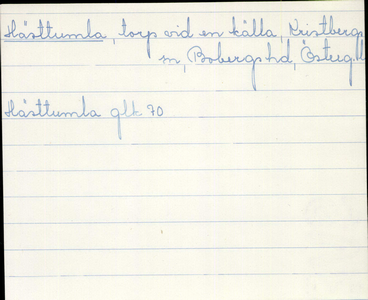 Hästtumla, torp vid en källa, Kristbergs
sn, Bobergs hd, Östergötl
Hästtumla glk 70